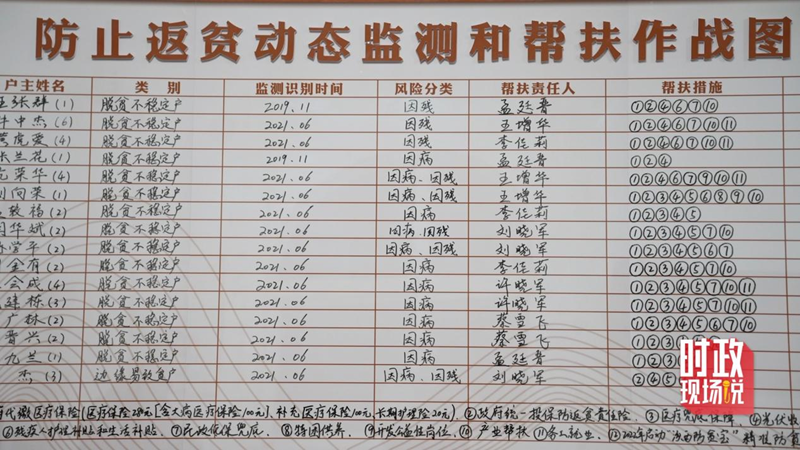 防止返贫动态监测和帮扶作战图
户主姓名 类 别 监测识别时间 风险分类 帮扶责任人 帮扶措施
张群(1) 脱贫不稳定户 2019.11 因残 孟廷晋 ①②④⑥⑦⑩
中杰(6) 脱贫不稳定户 2021.06 因残 王增华 ①②④⑥⑦⑩⑪
虎爱(4) 脱贫不稳定户 2021.06 因残 李佳莉 ①②④⑥⑦⑩⑪
兰花(1) 脱贫不稳定户 2019.11 因病 孟廷晋 ①②④
荣华(4) 脱贫不稳定户 2021.06 因病、因残 王增华 ①②④⑥⑦⑨⑩⑪
向荣(1) 脱贫不稳定户 2021.06 因病、因残 王增华 ①②③④⑤⑥⑧⑨⑩
致福(2) 脱贫不稳定户 2021.06 因病 李佳莉 ①②③④⑤
华斌(2) 脱贫不稳定户 2021.06 因病、因残 刘晓军 ①②③④⑤⑦⑩
学平(2) 脱贫不稳定户 2021.06 因病、因残 刘晓军 ①②③④⑤⑥⑦
金有(2) 脱贫不稳定户 2021.06 因病 李佳莉 ①②③④⑤⑦⑩
会成(4) 脱贫不稳定户 2021.06 因病 许晓军 ①②③④⑤⑦⑩⑪
建栋(3) 脱贫不稳定户 2021.06 因病 许晓军 ①②③④⑤⑥⑦⑪
广林(2) 脱贫不稳定户 2021.06 因病 蔡雪飞 ①②③④⑤⑥⑦⑩
晋兴(2) 脱贫不稳定户 2021.06 因病 蔡雪飞 ①②③④⑤
九兰(1) 脱贫不稳定户 2021.06 因病 孟廷晋 ①②③
杰(3) 边缘易致贫户 2021.06 因病、因残 刘晓军 ②④⑤
代缴医疗保险(医疗保险280元[含大病医疗保险100元]、补充医疗保险100元、长期护理险20元) ②政府统一投保防返贫责任险、③医疗兜底保障、④光伏收
⑥残疾人护理补贴和生活补贴 ⑦民政低保兜底 ⑧特困供养、⑨开发公益性岗位、⑩产业帮扶 ⑪务工就业、⑫2022年启动
时政
现场说